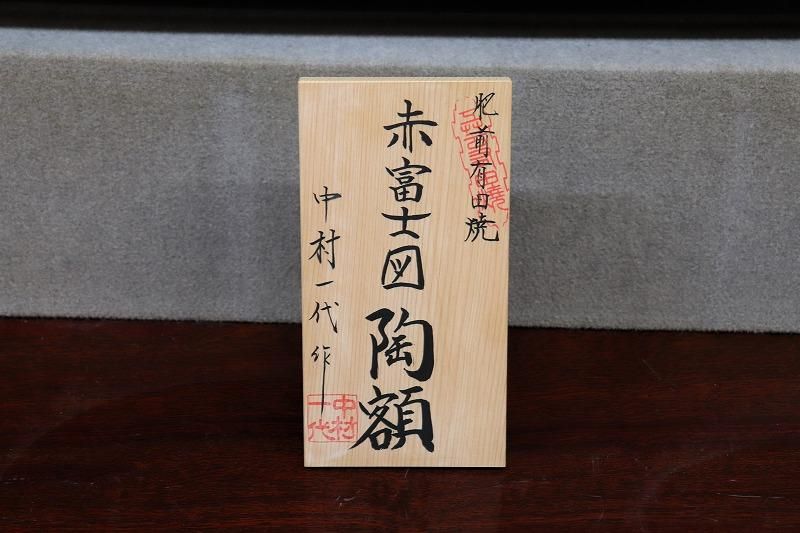 肥前有田焼
赤富士図陶額
中村一代作
中村
一代